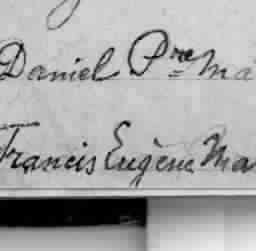 Daniel Pre Ma
Francis Eugène Ma